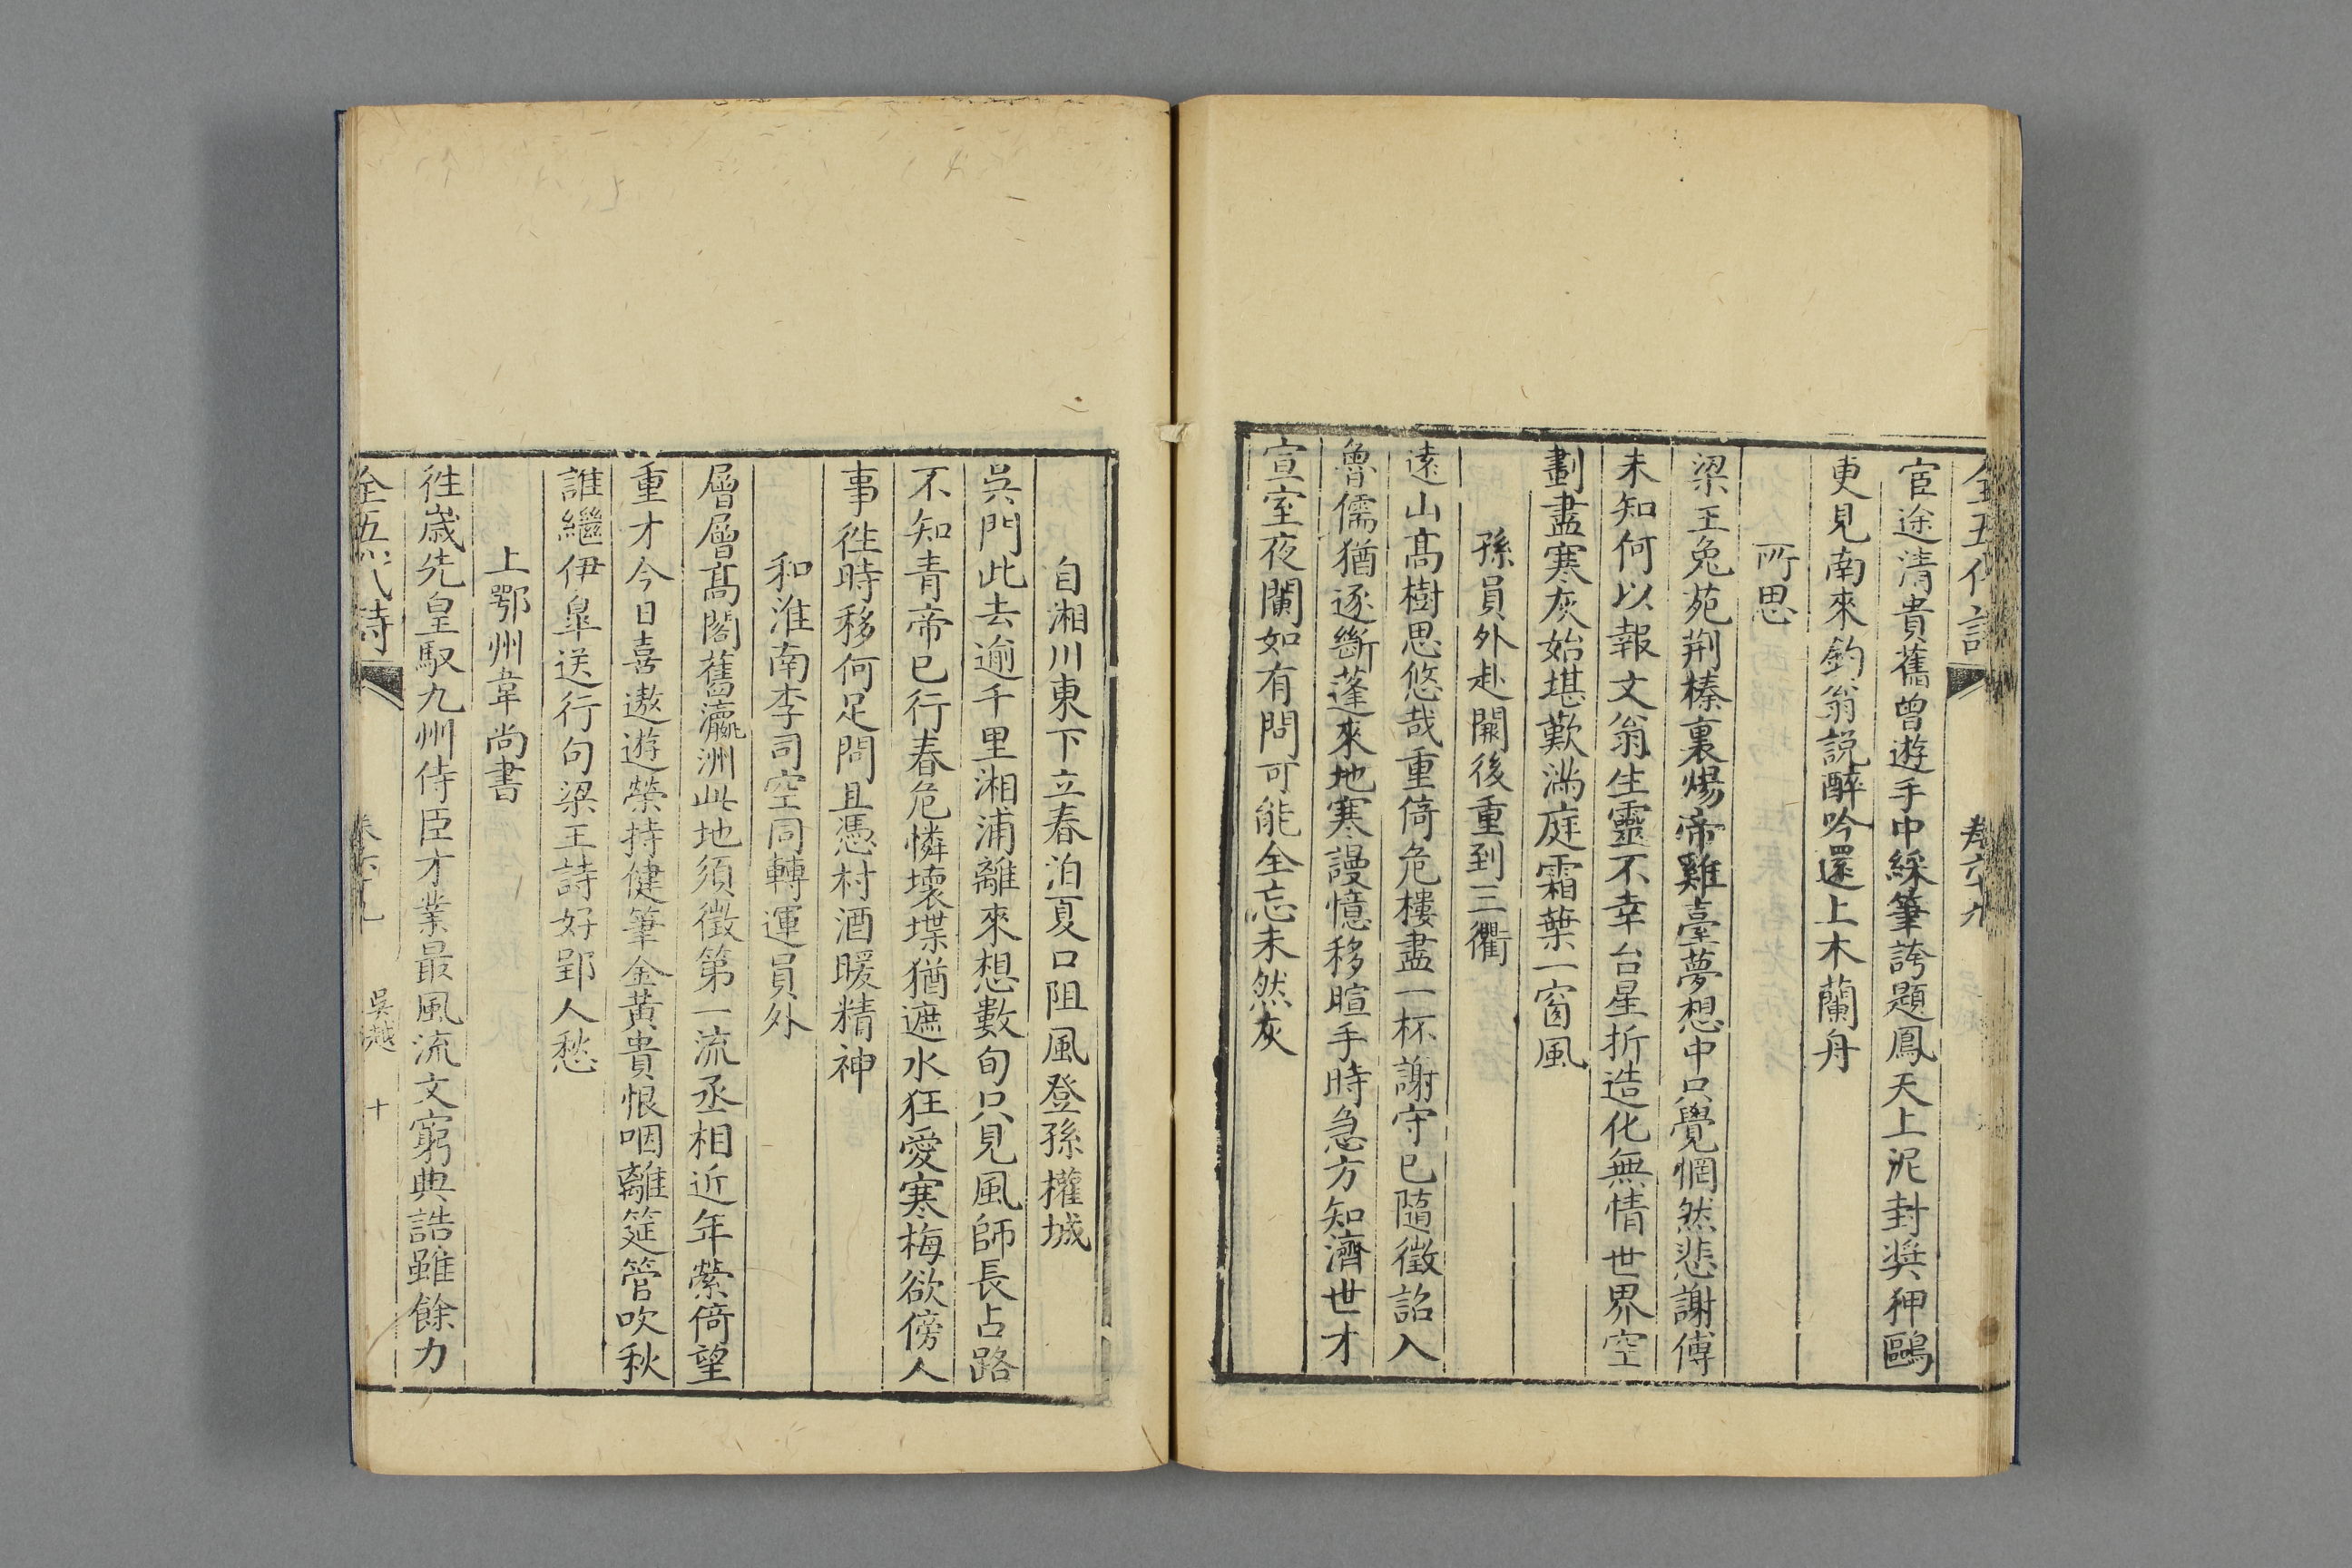 全五代詩 卷六十九
宦途清貴舊曾遊手中綵筆誇題鳳天上泥封奬狎鷗
更見南來釣翁説醉吟還上木蘭舟
所思
梁王兔苑荆榛裏煬帝雞臺夢想中只覺惘然悲謝傅
未知何以報文翁生靈不幸台星折造化無情世界空
劃盡寒灰始堪歎滿庭霜葉一窗風
孫員外赴闕後重到三衢
遠山髙樹思悠哉重倚危樓盡一杯謝守已隨徵詔入
魯儒猶逐斷蓬來地寒謾憶移暄手時急方知濟世才
宣室夜闌如有問可能全忘未然灰
自湘川東下立春泊夏口阻風登孫權城
吳門此去逾千里湘浦離來想數旬只見風師長占路
不知青帝已行春危憐壞堞猶遮水狂愛寒梅欲傍人
事徃時移何足問且憑村酒暖精神
和淮南李司空同轉運員外
層層髙閣舊瀛洲此地須徵第一流丞相近年縈倚望
重才今日喜遨遊榮持健筆金黃貴恨咽離筵管吹秋
誰繼伊臯送行句梁王詩好郢人愁
上鄂州韋尚書
徃歳先皇馭九州侍臣才業最風流文窮典誥雖餘力
全五代詩 卷六十九 吳越 十